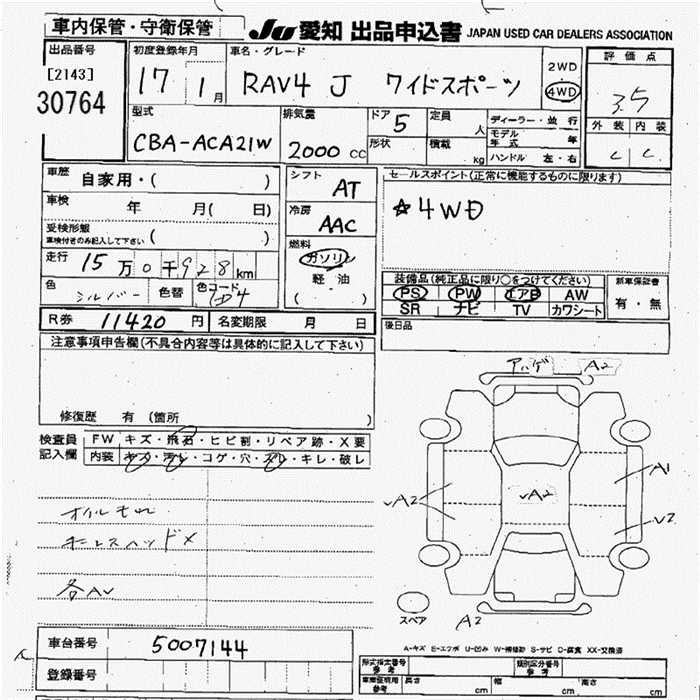 車内保管・守衛保管
JU 愛知 出品申込書 JAPAN USED CAR DEALERS ASSOCIATION
出品番号
[2143]
30764
初度登録年月
17 1月
車名・グレード
RAV4 J ワイドスポーツ
2WD
4WD
評価点
3.5
外装 内装
C C
型式
CBA-ACA21W
排気量
2000 cc
ドア 5
形状
定員 人
積載 kg
ディーラー・並行
モデル年式
ハンドル 左・右
車歴 自家用・( )
車検 年 月( 日)
受検形態
車検付きのみ記入して下さい ( )
走行 15万0千928km
色 シルバー 色替 色コード 1D4
シフト AT
冷房 AAC
燃料
ガソリン
軽油
( )
セールスポイント(正常に機能するものに限ります)
☆4WD
装備品(純正品に限り○をつけてください)
PS PW エアB AW
SR ナビ TV カワシート
新車保証書
有・無
R券 11420円 名変期限 月 日
後日品
注意事項申告欄(不具合内容等は具体的に記入して下さい)
修復歴 有 (箇所 )
検査員記入欄
FW キズ・飛石・ヒビ割・リペア跡・X要
内装 キズ・汚レ・コゲ・穴・スレ・キレ・破レ
オイルモレ
各AU
A2
A1
A2
A2
V2
スペア
A2
A-キズ E-エクボ U-凹み W-補修跡 S-サビ C-腐食 XX-交換済
車台番号 5007144
登録番号
形式指定番号
参考
類別区分番号
参考
車庫証明用
参考
長さ cm 幅 cm 高さ cm